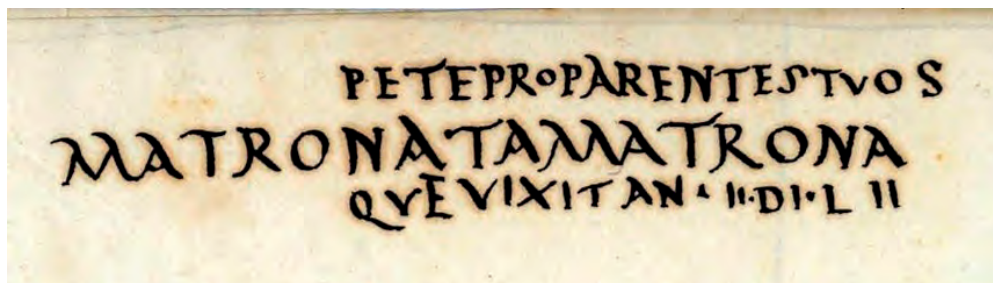 PETEPROPARENTESTVOS
MATRONATAMATRONA
QVEVIXITAN·II·DI·LII